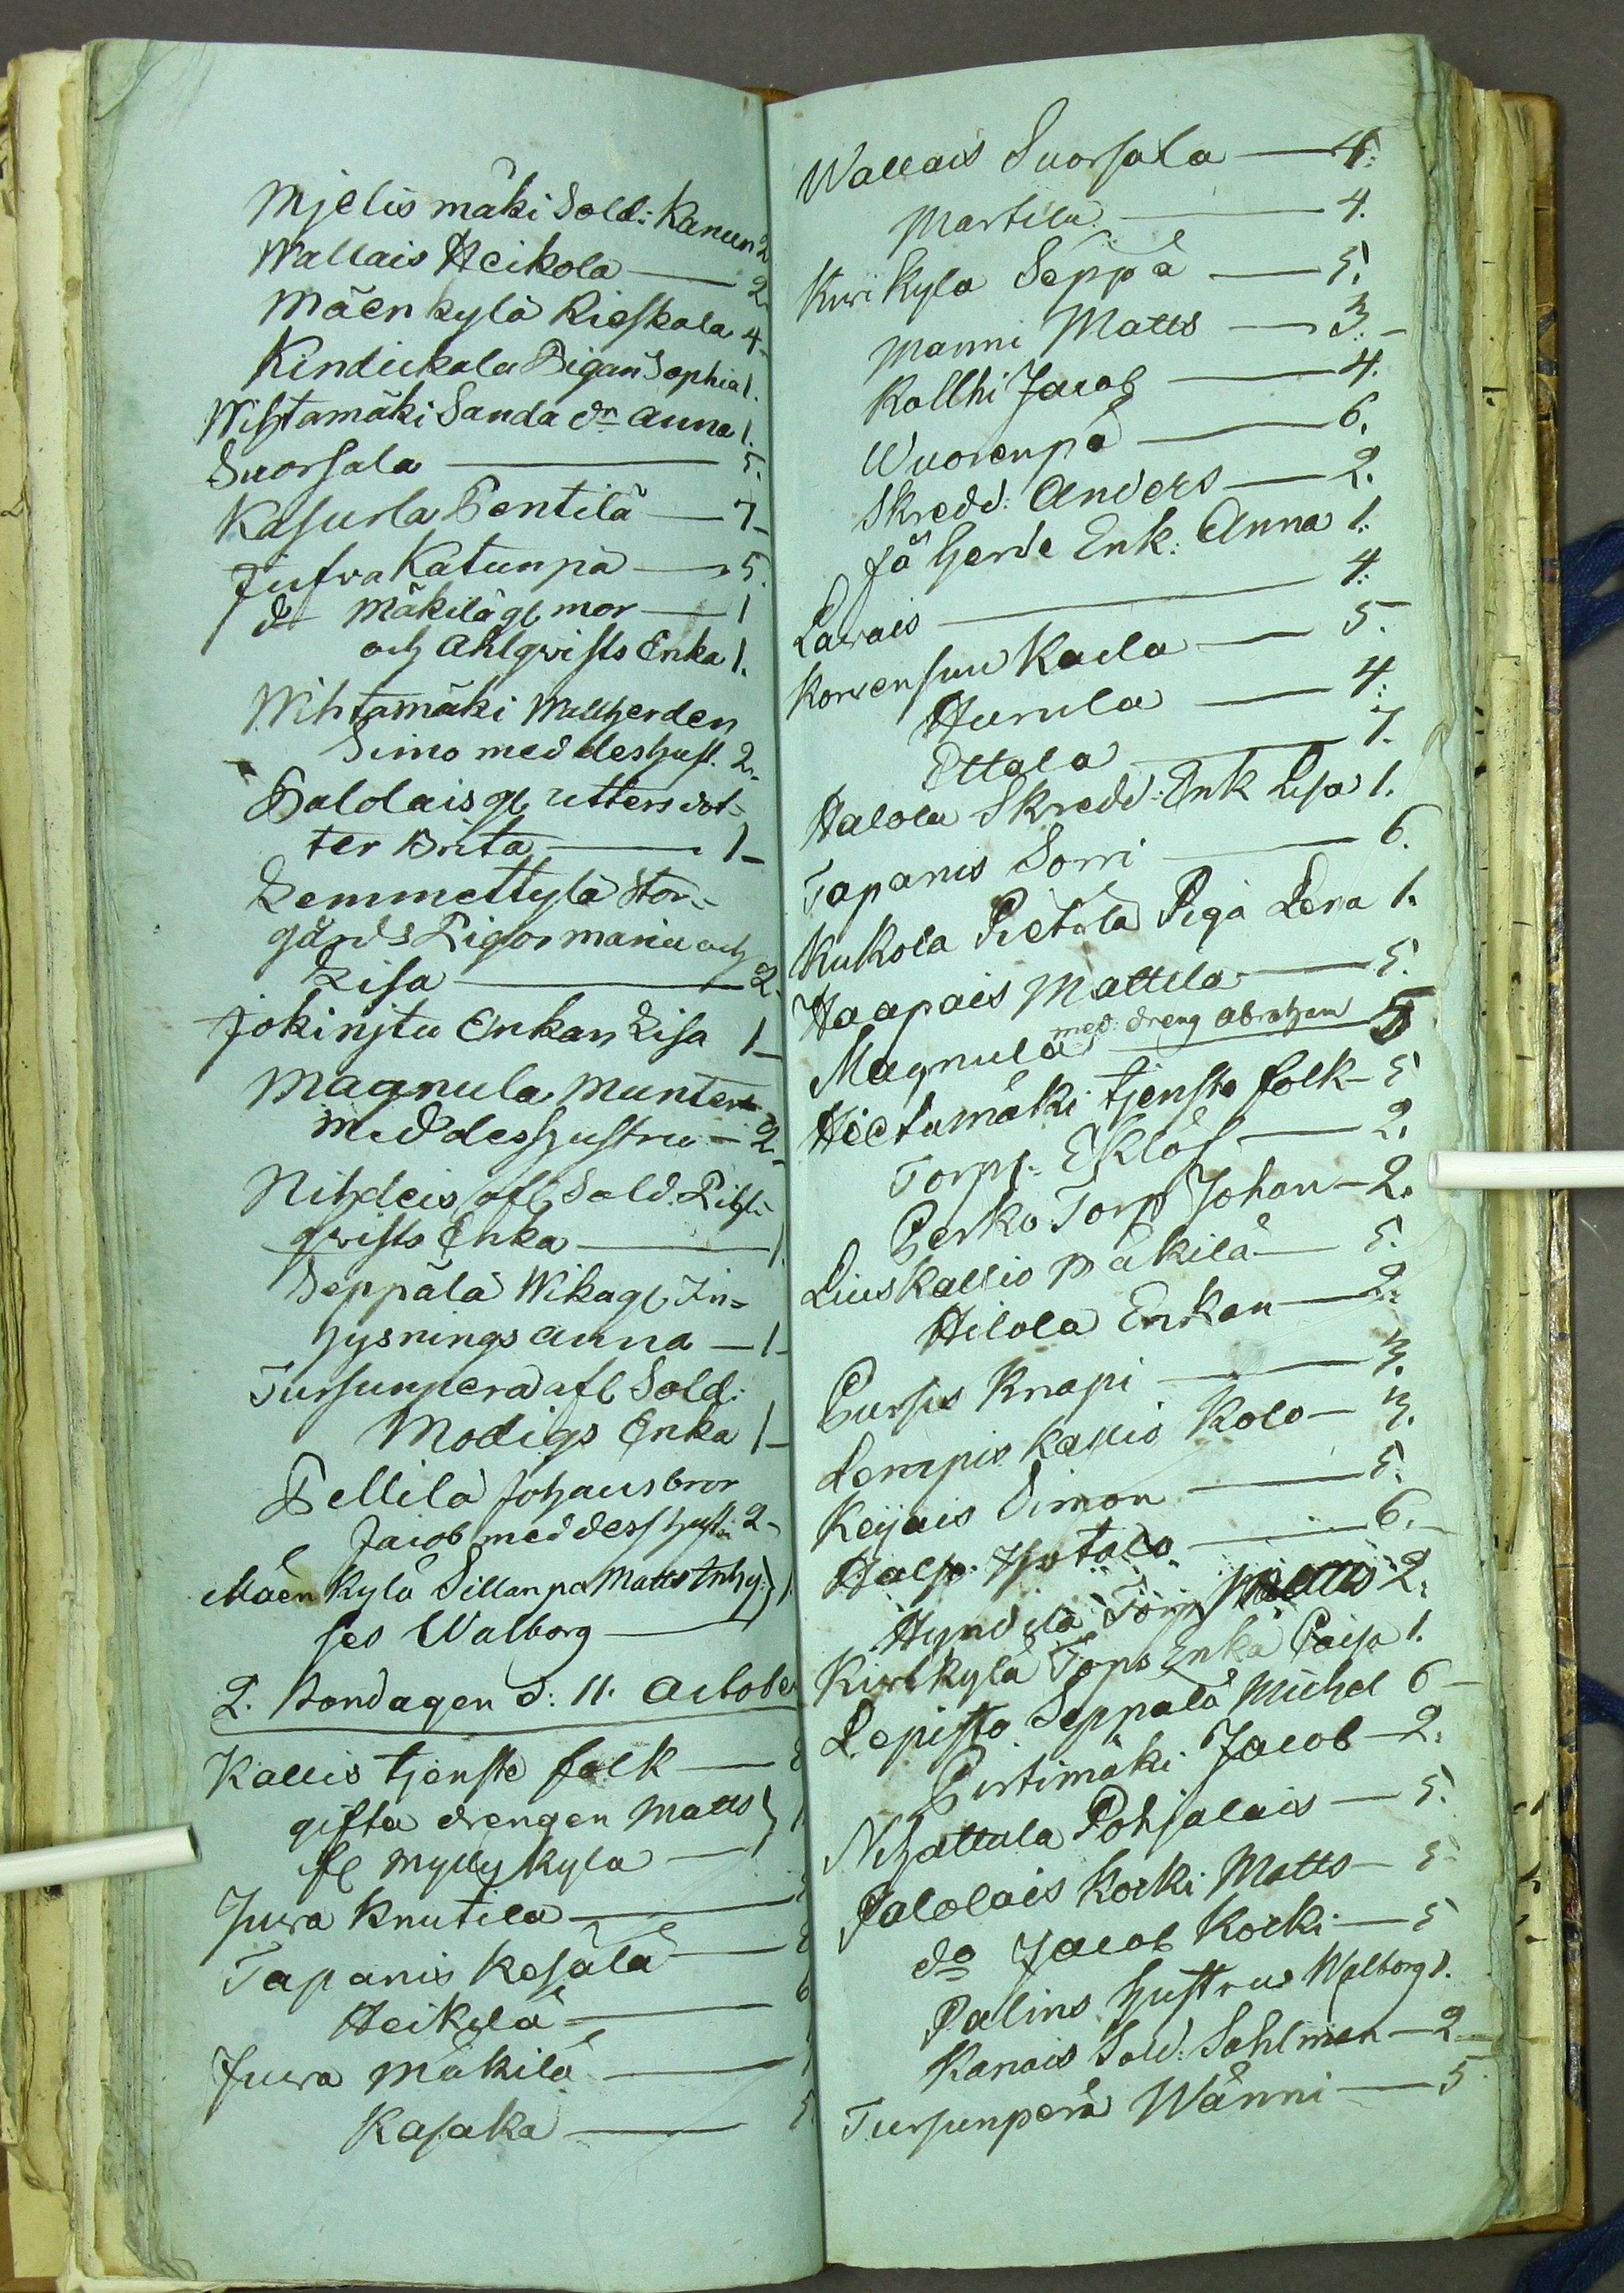 Mjelis mäki Sold: Kanun 2
Wallais Heikola — 2
Mäen kylä Rieskala 4 -
Kindickala Pigan Sophia 1.
Wihtamäki Sanda dr Anna 1.
Suorsala — 5.
Kasurla Pentilä — 7 -
Jufva Katunpä — 5.
d Mäkilä gl mor — 1
och Ahlqvists Enka 1.
Wihtamäki Wallherden
Simo med deshust. 2.
Paldais gl rutters dot=
ter Brita — 1 -
Lemmettylä Stor=
gårds Pigor maria och
Lisa — 2.
Jokinjtu Enkan Lisa 1 -
Magnula Munter
med deshustru — 2 -
Nihdeis afl Sold. Lihl
qvists Enka — 1.
Seppälä Wika gl In=
hysnings anna — 1 -
Tursunperä afl Sold:
Modigs Enka 1 -
Pellilä Johans bror
Jacob med dess hustru 2 -
Mäen kylä Sillanpä Matts Inhy } 1.
ses Walborg —
2. Söndagen d: 11. October
Kallis tjenste folk —
gifta drengen Matts }
fl Mylly kylä —
Juva Knutila —
Tapanis Kesälä —
Heikilä — 6
Juva Mäkilä —
Kasaka — 5.
Wallais Suorsala — 4.
Martila — 4.
Kirikyla Seppä — 5.
Manni Matts — 3. -
Kollhi Jacob — 4.
Wuorenpä — 6.
Skredd: Anders — 2.
Få herde Enk: Anna 1.
Lavais — 4.
Korvensuu Kaila — 5.
Hurula — 4.
Ettala — 7.
Halola Skredd: Enk Lisa 1.
Tapanis Sorri — 6.
Kukola Pietola Piga Lena 1.
Haapais Mattila — 5.
Magnula med dreng Abraham 5
Hietamäki tjenste folk — 5
Torpr: Eklöf — 2.
Perko Torp Johan — 2.
Liuskallio Mäkilä — 5.
Hilola Enkan — 2.
Pursis Knapi — 3.
Lempis Kallis Kolo — 3.
Keijais Simon — 5.
Halp. Yotalo — 6. -
Hyndilä Torp Matts 2.
Kirkkylä Torps Enka Caisa 1.
Lepistö Seppälä Michel 6 -
Pirtimäki Jacob — 2.
Nihattula Pohjalais — 5.
Palolais Korki Matts — 5
do Jacob Korki — 5
Palins hustru Walborg 1.
Kanais Sold: Sahlman — 2 -
Tursunperä Wänni — 5